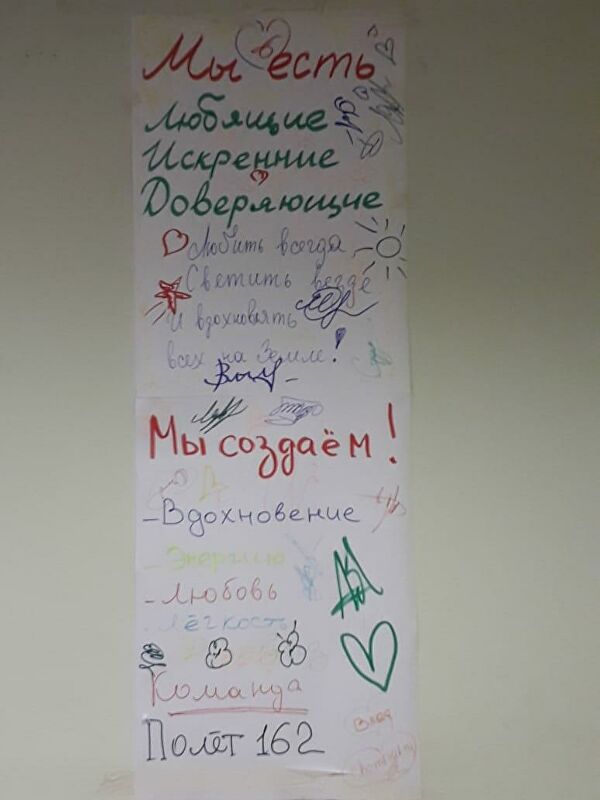 Мы есть
Любящие
Искренние
Доверяющие
Любить всегда,
Светить везде
И вдохновлять
всех на Земле!
Мы создаём!
-Вдохновение
-Энергию
-Любовь
-Лёгкость
Команда
Полёт 162
Влад